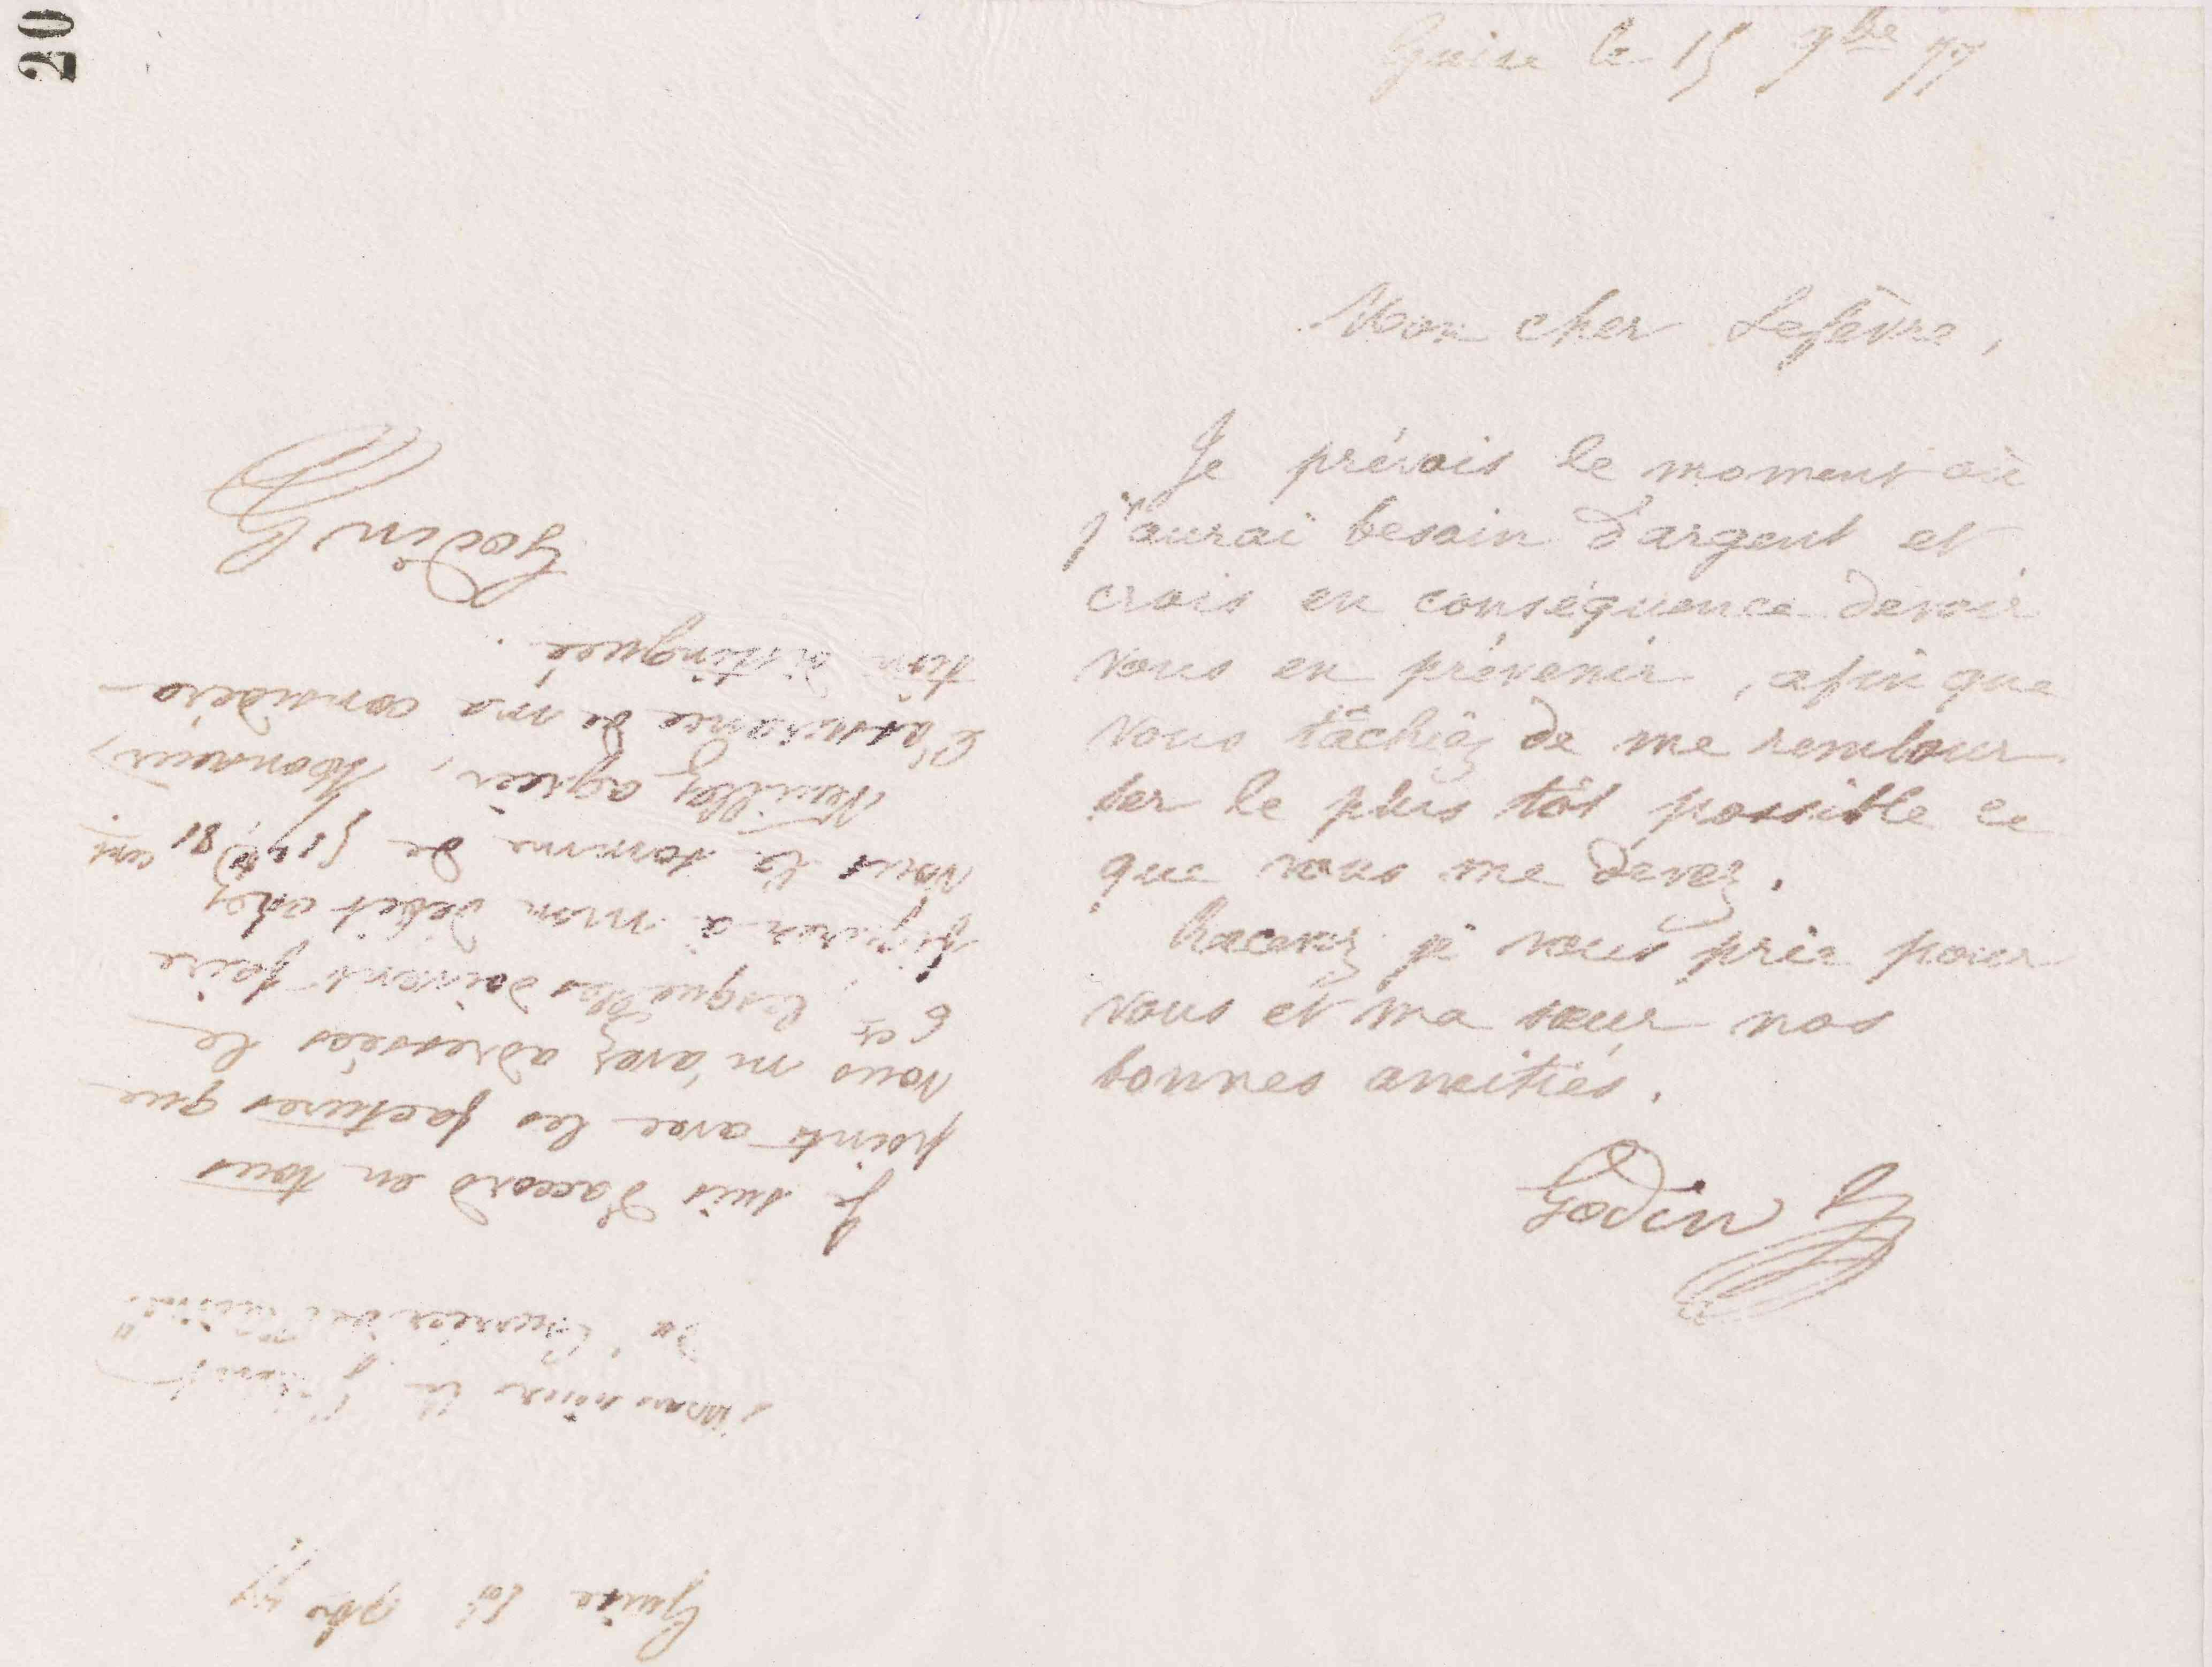 20
Guise le 15 9bre 77
Mon cher Lefèvre,
Je prévois le moment où
j'aurai besoin d'argent et
crois en conséquence devoir
vous en prévenir, afin que
vous tâchiez de me rembour
ser le plus tôt possible ce
que vous me devez.
Recevez je vous prie pour
vous et ma sœur nos
bonnes amitiés.
Godin
Guise 9bre 77
Monsieur le Gérant
du "Courrier de l'Aisne"
Je suis d'accord en tous
points avec les factures que
vous m'avez adressées le
6 ct, lesquelles doivent faire
figurer à mon débit chez
vous la somme de
Veuillez agréer, Monsieur,
l'assurance de ma considéra
tion distinguée.
Godin